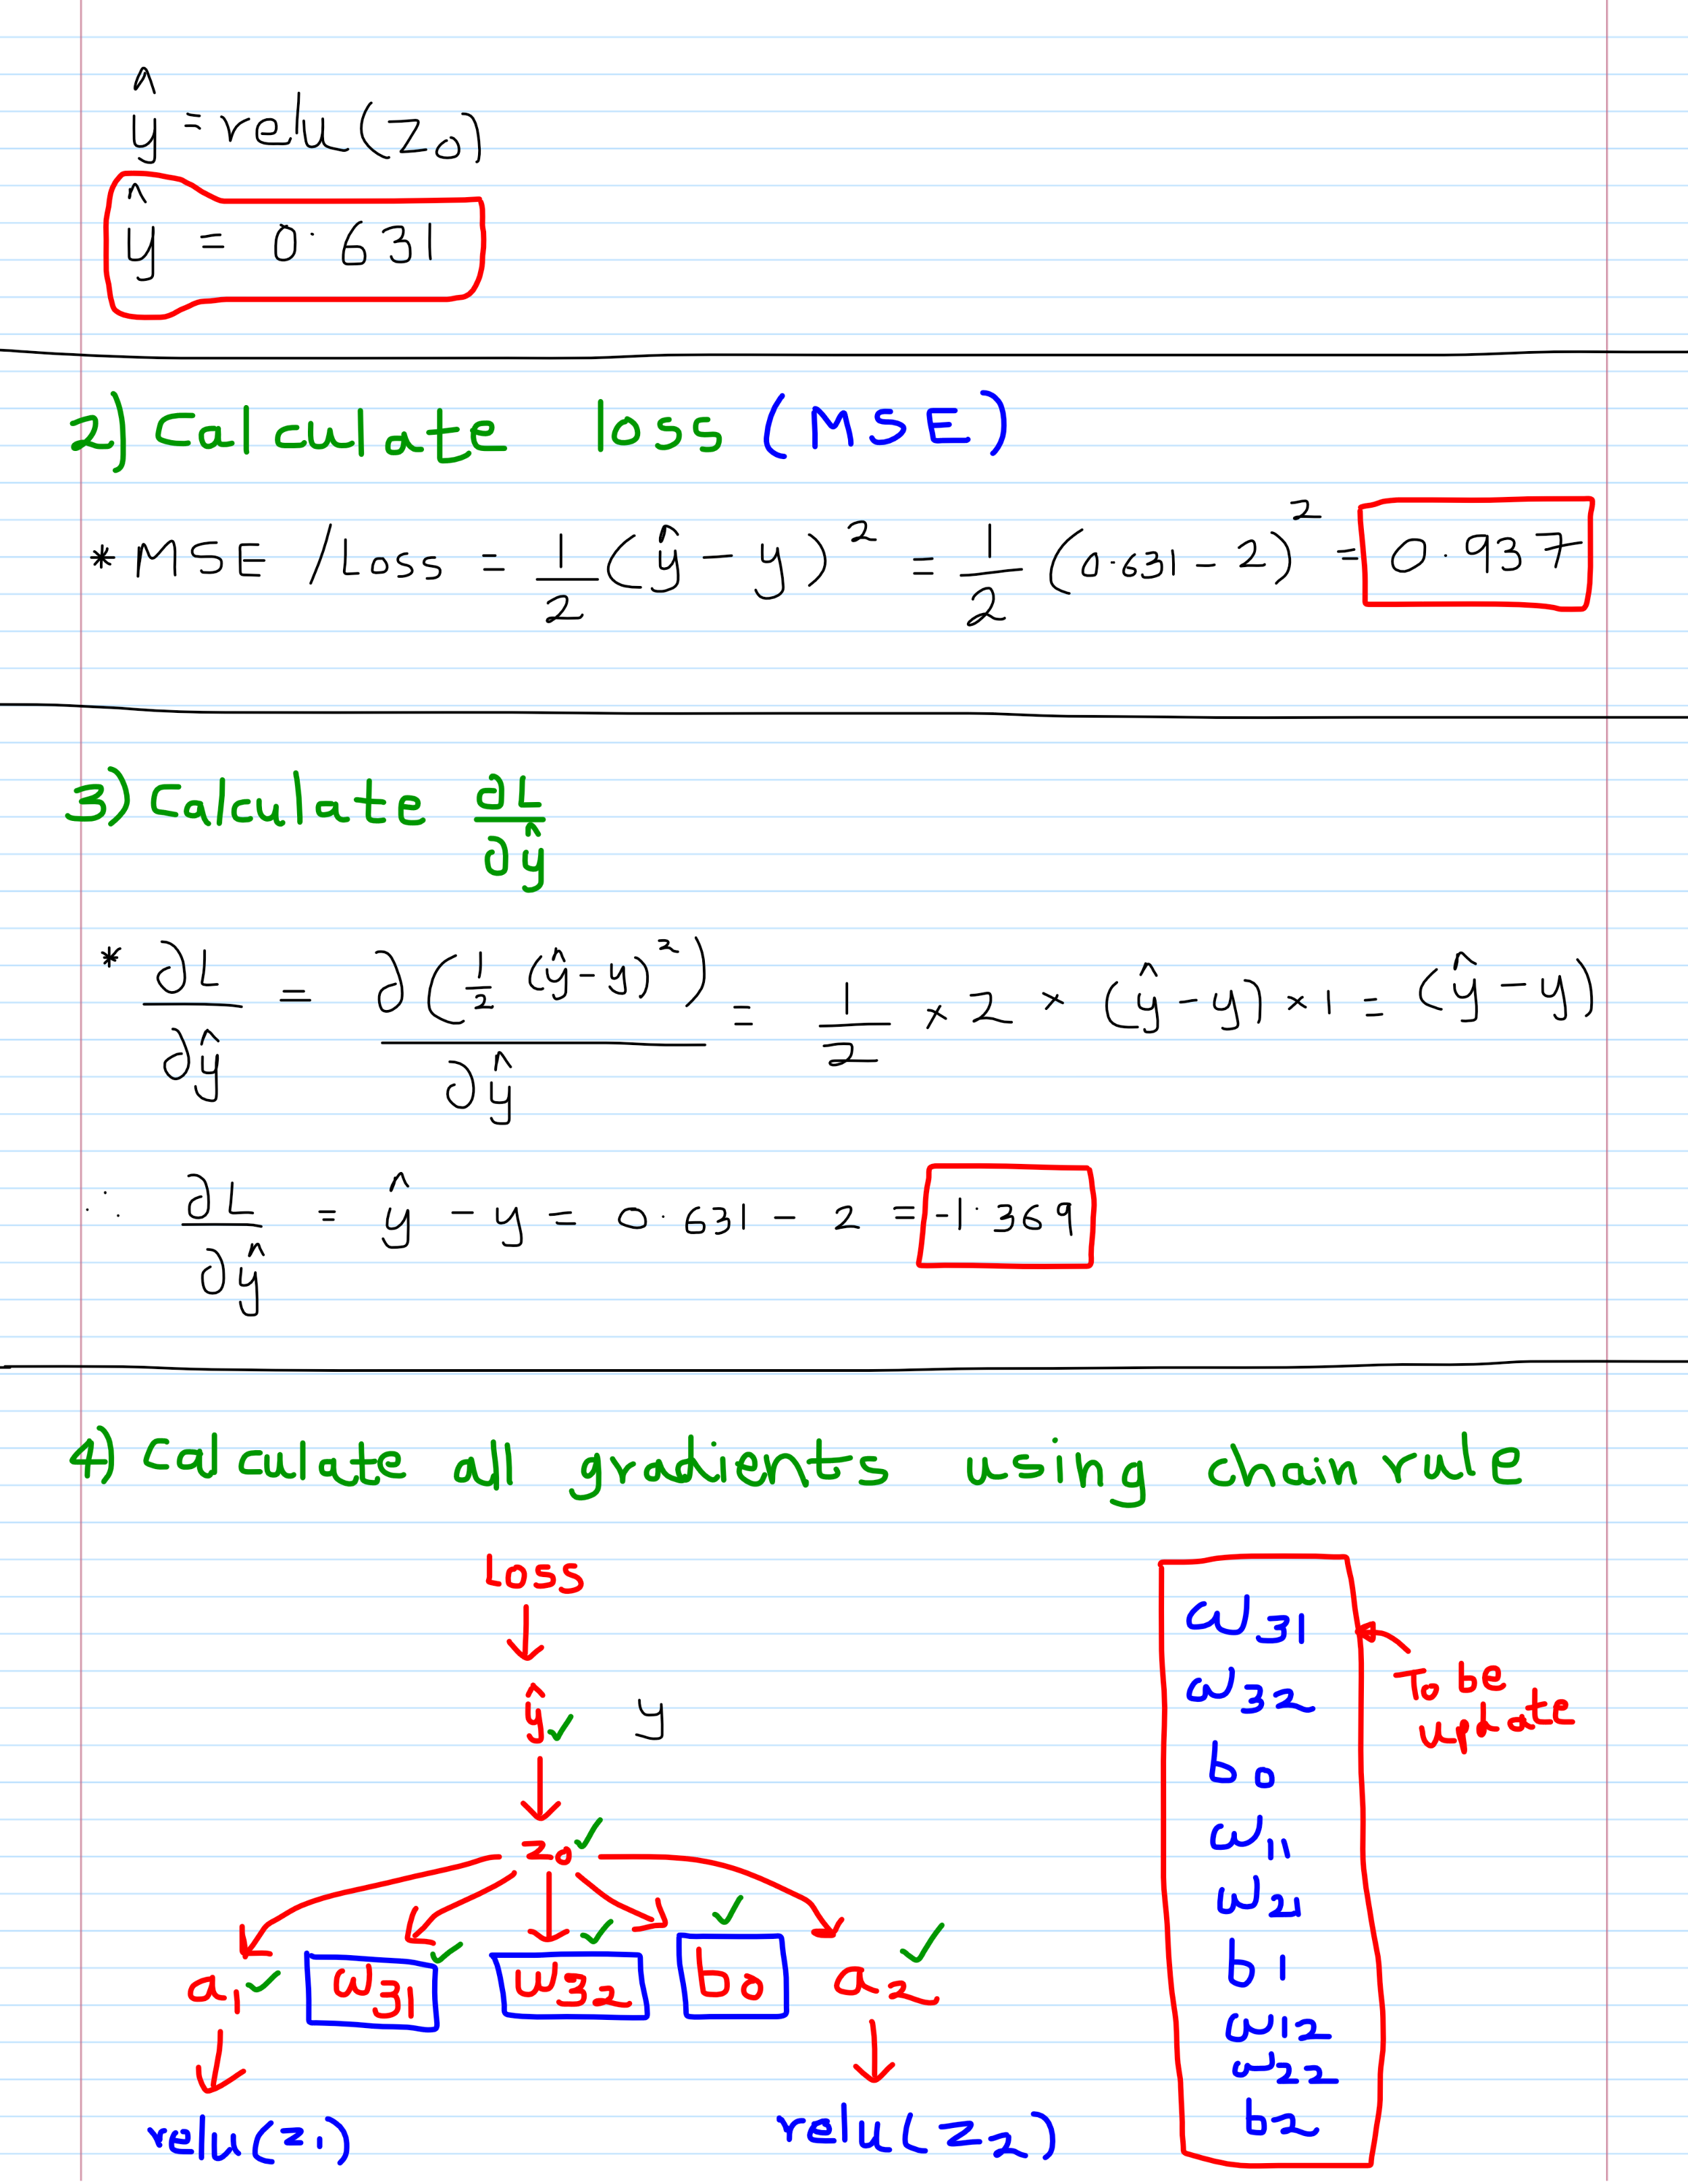 ŷ = relu(z₀)
ŷ = 0.631
2) Calculate loss (MSE)
* MSE / Loss = 1/2 (ŷ - y)² = 1/2 (0.631 - 2)² = 0.937
3) Calculate ∂L/∂ŷ
* ∂L/∂ŷ = ∂(1/2 (ŷ - y)²)/∂ŷ = 1/2 × 2 × (ŷ - y) × 1 = (ŷ - y)
∴ ∂L/∂ŷ = ŷ - y = 0.631 - 2 = -1.369
4) Calculate all gradients using chain rule
Loss
ŷ ✓ y
z₀ ✓
a₁ ✓ ω₃₁ ✓ ω₃₂ ✓ b₀ ✓ a₂ ✓
relu(z₁) relu(z₂)
ω₃₁
ω₃₂
b₀
ω₁₁
ω₂₁
b₁
ω₁₂
ω₂₂
b₂
To be
update